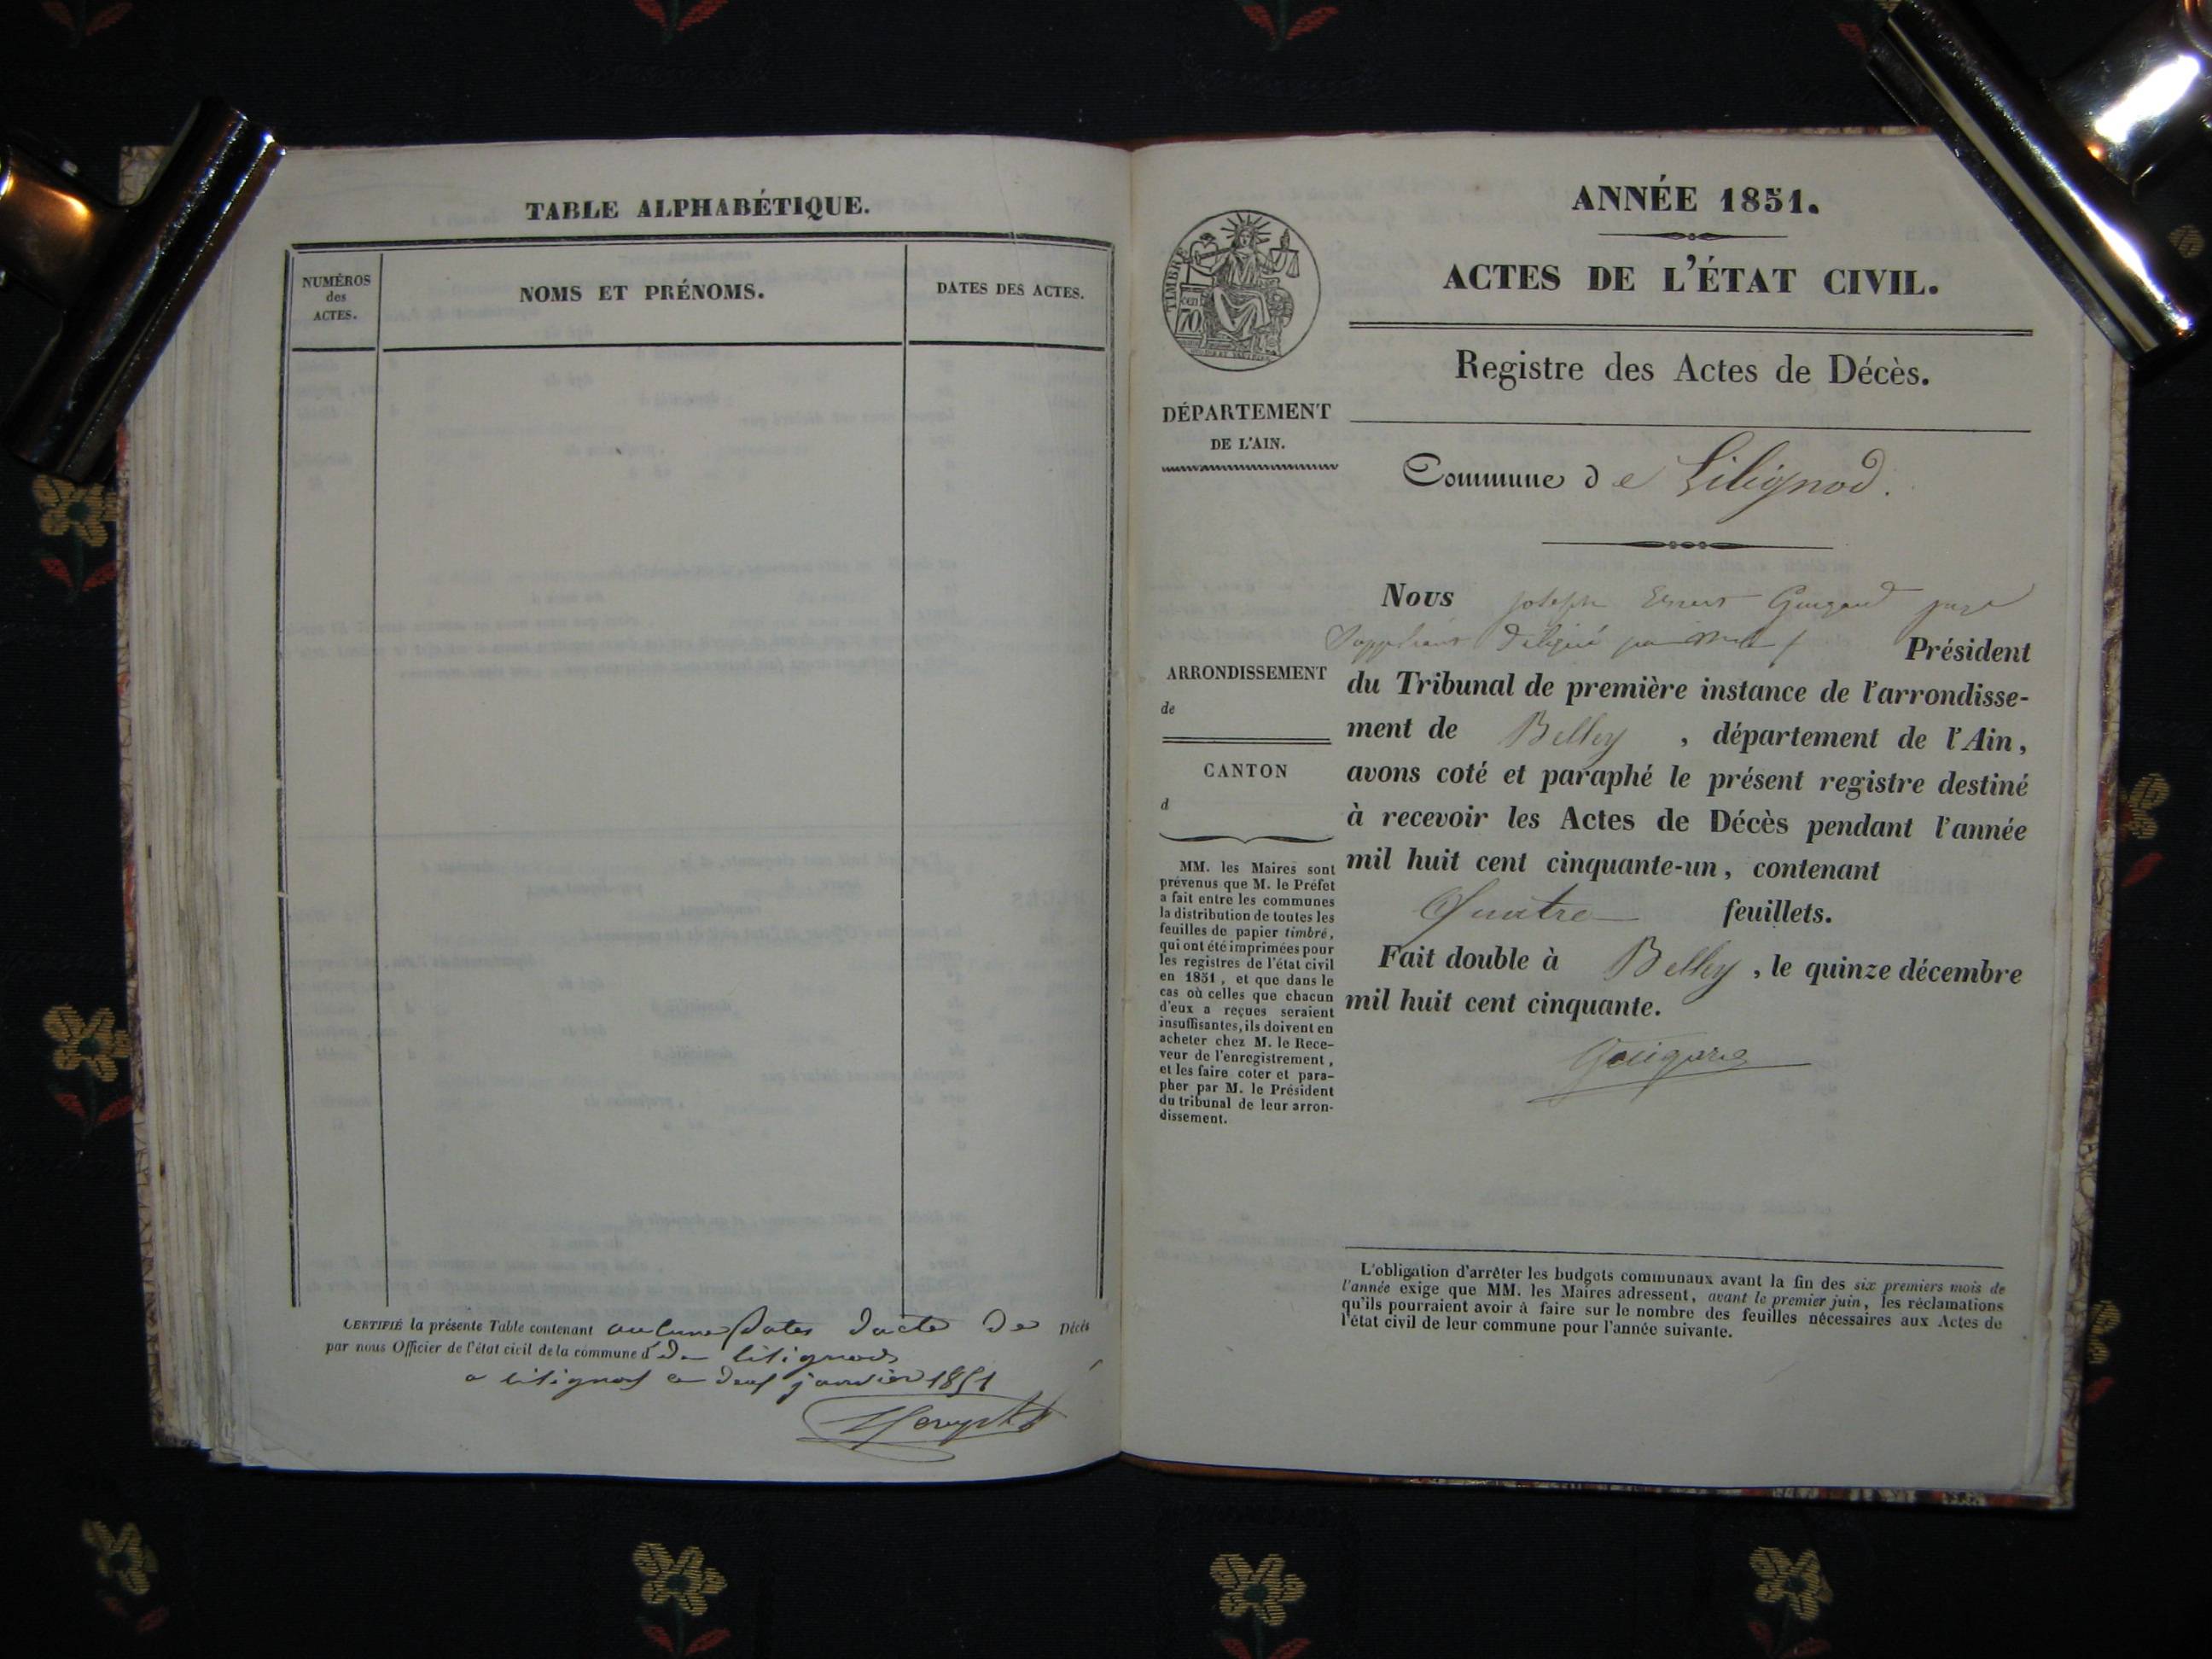 TABLE ALPHABÉTIQUE.
NUMÉROS
des
ACTES.
NOMS ET PRÉNOMS.
DATES DES ACTES.
CERTIFIÉ la présente Table contenant aucunes dates dacte De Décès
par nous Officier de l'état civil de la commune d de litignod
a litignod le deux janvier 1851
ANNÉE 1851.
ACTES DE L'ÉTAT CIVIL.
TIMBRE
70
Registre des Actes de Décès.
DÉPARTEMENT
DE L'AIN.
Commune de Lilignod.
Nous Joseph Ernest juge
Suppléant délégué par Président
du Tribunal de première instance de l'arrondisse-
ment de Belley, département de l'Ain,
avons coté et paraphé le présent registre destiné
à recevoir les Actes de Décès pendant l'année
mil huit cent cinquante-un, contenant
Quatre feuillets.
Fait double à Belley, le quinze décembre
mil huit cent cinquante.
ARRONDISSEMENT
de
CANTON
d
MM. les Maires sont
prévenus que M. le Préfet
a fait entre les communes
la distribution de toutes les
feuilles de papier timbré,
qui ont été imprimées pour
les registres de l'état civil
en 1851, et que dans le
cas où celles que chacun
d'eux a reçues seraient
insuffisantes, ils doivent en
acheter chez M. le Rece-
veur de l'enregistrement,
et les faire coter et para-
pher par M. le Président
du tribunal de leur arron-
dissement.
L'obligation d'arrêter les budgets communaux avant la fin des six premiers mois de
l'année exige que MM. les Maires adressent, avant le premier juin, les réclamations
qu'ils pourraient avoir à faire sur le nombre des feuilles nécessaires aux Actes de
l'état civil de leur commune pour l'année suivante.